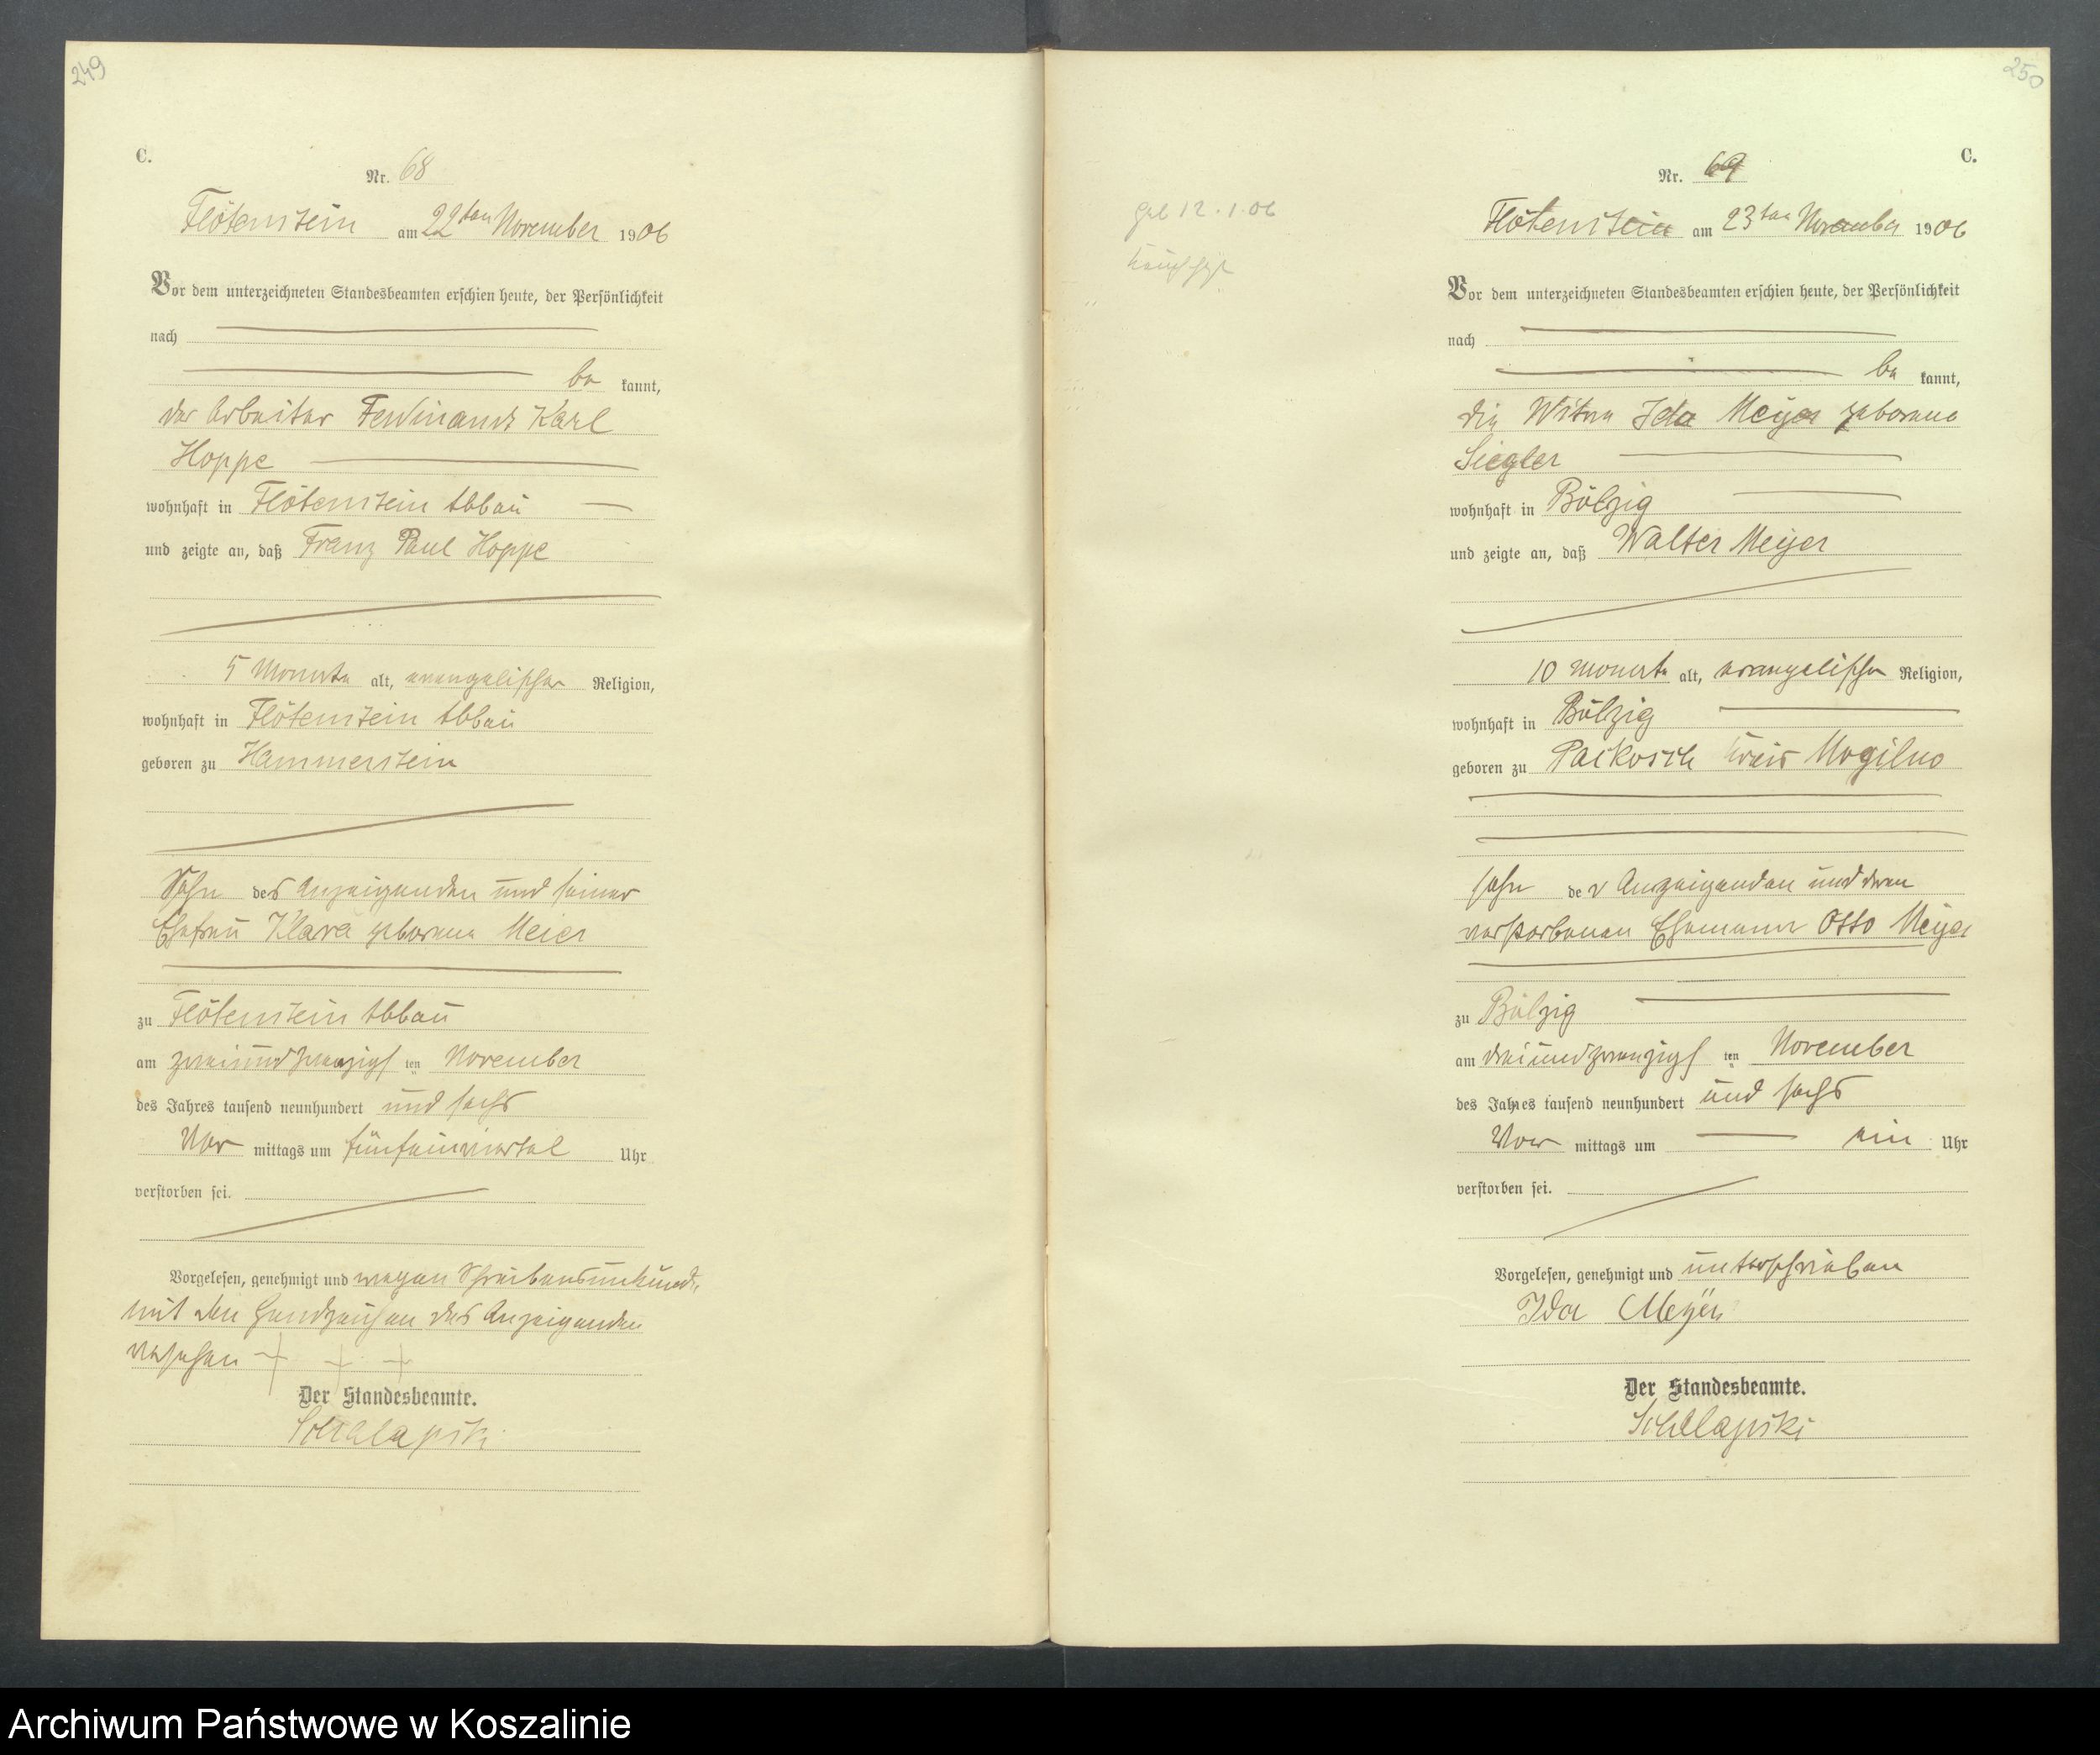 249
C.
Nr. 68
Flötenstein am 22ten November 1906
Vor dem unterzeichneten Standesbeamten erschien heute, der Persönlichkeit
nach
be kannt,
der Arbeiter Ferdinand Karl
Hoppe
wohnhaft in Flötenstein Abbau
und zeigte an, daß Franz Paul Hoppe
5 Monate alt, evangelischer Religion,
wohnhaft in Flötenstein Abbau
geboren zu Hammerstein
Sohn des Anzeigenden und seiner
Ehefrau Klara geborene Meier
zu Flötenstein Abbau
am zweiundzwanzigs ten November
des Jahres tausend neunhundert und sechs
Vor mittags um fünfeinviertel Uhr
verstorben sei.
Vorgelesen, genehmigt und wegen Schreibensunkunde
mit den Handzeichen des Anzeigenden
versehen + + +
Der Standesbeamte.
250
C.
Nr. 69
geb 12.1.06
Flötenstein am 23ten November 1906
Vor dem unterzeichneten Standesbeamten erschien heute, der Persönlichkeit
nach
be kannt,
die Witwe Ida Meyer geborene
Siegler
wohnhaft in Bölzig
und zeigte an, daß Walter Meyer
10 Monate alt, evangelischer Religion,
wohnhaft in Bölzig
geboren zu Pakosch Kreis Mogilno
Sohn der Anzeigenden und deren
verstorbenen Ehemann Otto Meyer
zu Bölzig
am dreiundzwanzigs ten November
des Jahres tausend neunhundert und sechs
Vor mittags um ein Uhr
verstorben sei.
Vorgelesen, genehmigt und unterschrieben
Ida Meyer
Der Standesbeamte.
Archiwum Państwowe w Koszalinie